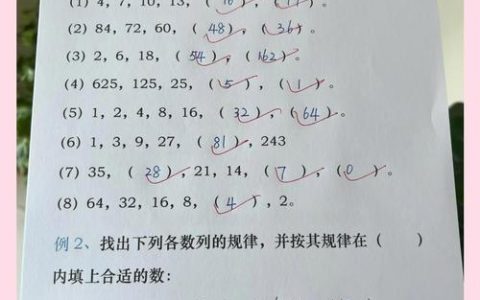 (1) 4, 7, 10, 13, ( 16 ), ( 19 )。
(2) 84, 72, 60, ( 48 ), ( 36 )。
(3) 2, 6, 18, ( 54 ), ( 162 )。
(4) 625, 125, 25, ( 5 ), ( 1 )。
(5) 1, 2, 4, 8, 16, ( 32 ), ( 64 )。
(6) 1, 3, 9, 27, ( 81 ), 243
(7) 35, ( 28 ), 21, 14, ( 7 ), ( 0 )。
(8) 64, 32, 16, 8, ( 4 ), 2。
例 2、找出下列各数列的规律，并按其规律在（ ）
内填上合适的数：